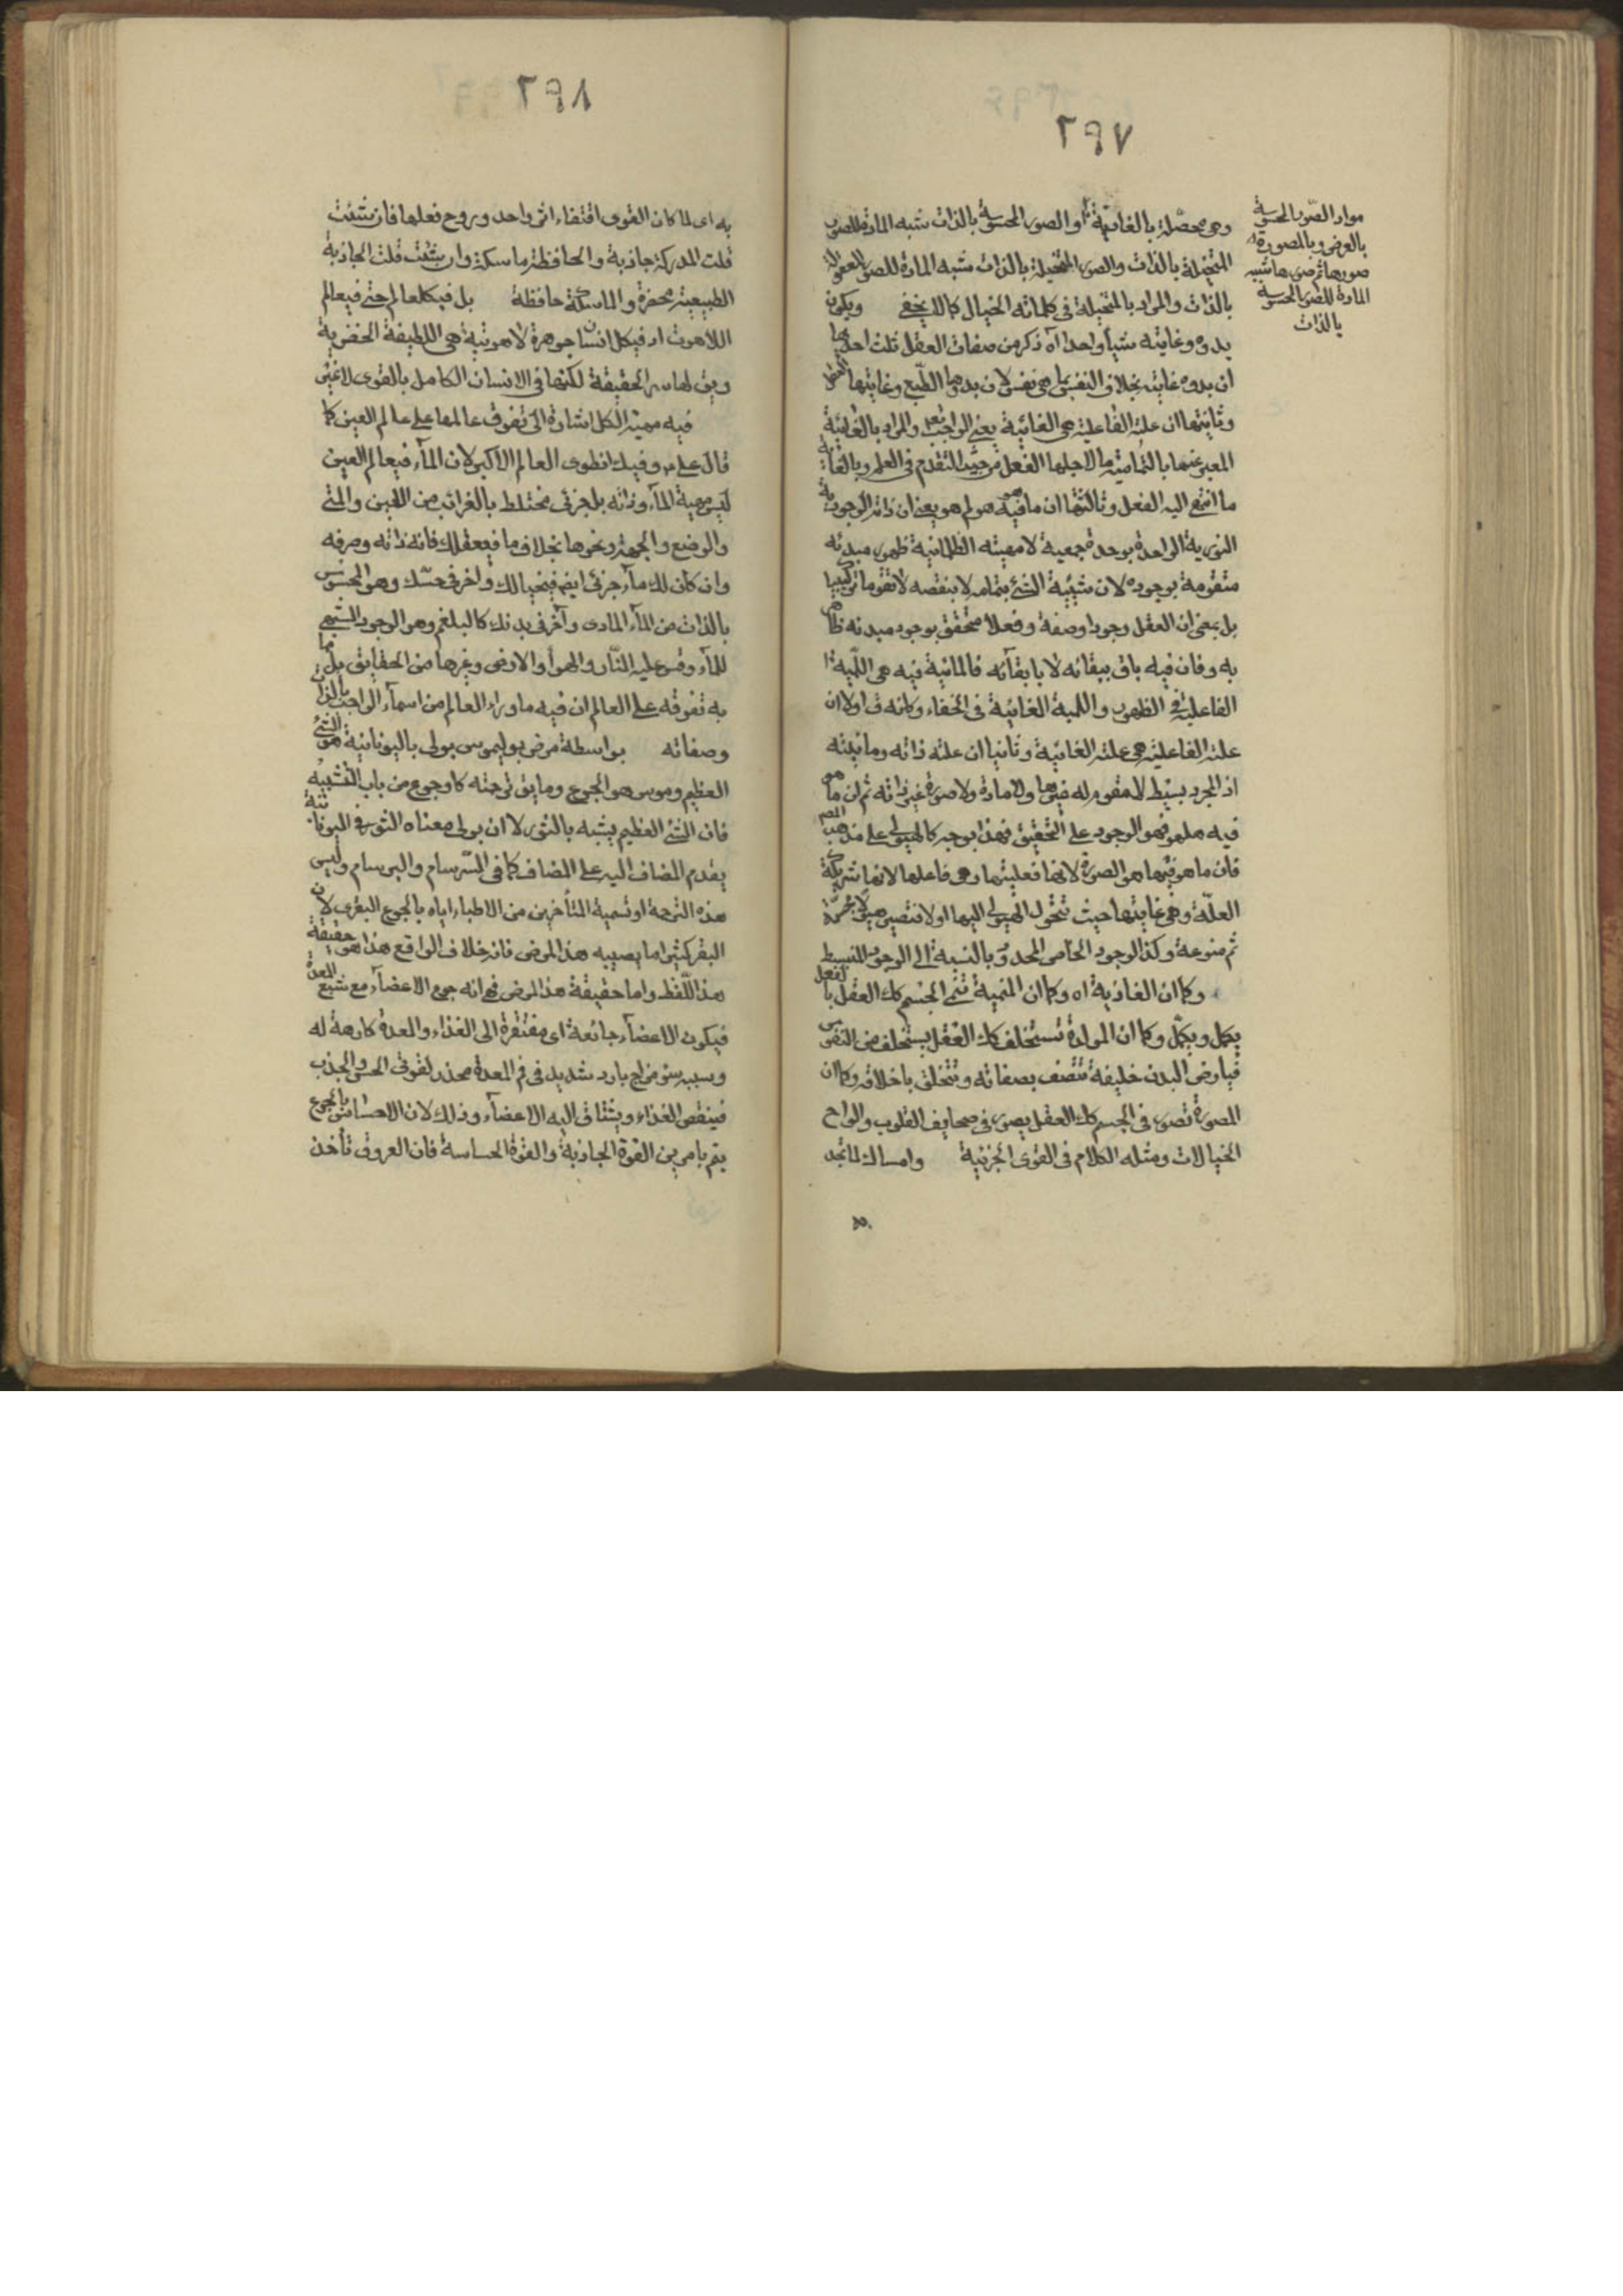 ٢٩٧
مواد الصور المحسوسة
بالعرض وبالمصورة
صورها ثم صورها شبيه
المادة للصور المحسوسة
بالذات
وهى محصلة بالغاذية او الصور المحسوسة بالذات شبه المادة للصور
المتخيلة بالذات والصور المتخيلة بالذات شبه المادة للصور المعقولة
بالذات والمراد بالمتخيلة فى كلماته الخيال كما لا يخفى ويكون
بدوه وغايته شيأ واحدا آه ذكر من صفات العقل ثلث احدها
ان بدوه غايته بخلاف النفس بما هى نفس لان بدوها الطبع وغايتها العقل
وثانيتها ان علته الفاعلية هى الغائية يعنى الواجب تعالى والمراد بالغائية
المعبر عنها بالتمامية ما لاجلها الفعل من حيث التقدم فى العلم وبالغاية
ما انتهى اليه الفعل وثالثتها ان ما فيه هو لم هو يعنى ان ذاته الوجودية
النورية الواحدة بوحدة جمعية لا مهيته الظلمانية ظهور مبدئه
متقومة بوجوده لان شيئية الشئ بتمامه لا بنقصه لا تقوما تركيبيا
بل بمعنى ان العقل وجودا وصفة وفعلا متحقق بوجود مبدئه ظاهر
به وفان فيه باق ببقائه لا بابقائه فالمائية فيه هى اللمية
الفاعلية فى الظهور واللمية الغائية فى الخفاء وكانه ق اولا ان
علته الفاعلية هى علته الغائية وثانيا ان علته ذاته ومائيته
اذ المجرد بسيط لا مقوم له غيرها ولا مادة ولا صورة غير ذاته ثم ان ما هو
فيه هلهو فهو الوجود على التحقيق فهذا بوجه كالهيولى على مذهب المص
فان ما هو فيها هو الصورة لانها فعليتها وهى فاعلها لانها شريكة
العلة وهى غايتها حيث تتحول الهيولى اليها اولا فتصير هيولى مجسمة
ثم منوعة وكذا الوجود الخاص المحدود بالنسبة الى الوجود البسيط
وكما ان الغاذية اه وكما ان المنمية تنمى الجسم كك العقل بالفعل
يكمل ويكمّل وكما ان المولدة تستخلف كك العقل يستخلف من النفوس
فى ارض البدن خليفة تتصف بصفاته وتتخلق باخلاقه وكما ان
المصورة تصور فى الجسم كك العقل يصور فى صحايف القلوب والواح
الخيالات ومثله الكلام فى القوى الجزئية وامساك لما تجد
٢٩٨
به اى لما كان القوى اقتفاء اثر واحد وروح فعلها فان شئت
قلت المدركة جاذبة والحافظة ماسكة وان شئت قلت الجاذبة
الطبيعية محضرة والماسكة حافظة بل فيكل عالم حتى فى عالم
اللاهوت اذ فى كل انسان جوهرة لاهوتية هى اللطيفة الخفوية
ويق لها سر الحقيقة لكنها فى الانسان الكامل بالقوى لا غير
فيه مهية الكل اشارة الى تفوق عالمها على عالم العين كما
قال على ع وفيك انطوى العالم الاكبر لان الماء فى عالم العين
ليس مهية الماء وذاته بل جزئى مختلط بالغرائب من الاين والمتى
والوضع والجهة ونحوها بخلاف ما فى عقلك فانه ذاته وصرفه
وان كان لك ماء جزئى ايضا فى خيالك وآخر فى حسّك وهو المحسوس
بالذات من الماء المادى وآخر فى بدنك كالبلغم وهو الوجود الشبهى
للماء وقس عليه النّار والهوآ والارض وغيرها من الحقايق بل ما
به تفوقه على العالم ان فيه ما وراء العالم من اسماء الواجب بالذات
وصفاته بواسطة مرض بوليموس بولى باليونانية هو الشئ
العظيم وموس هو الجوع وما يق ترجمته كاوجوع من باب التشبيه
فان الشئ العظيم يشبه بالثور لا ان بولى معناه الثور فى اليونانية
يقدم المضاف اليه على المضاف كما فى السرسام والبرسام وليس
هذه الترجمة او تسمية المتأخرين من الاطباء اياه بالجوع البقرى لان
البقر كثيرا ما يصيبه هذا المرض فانه خلاف الواقع هذا هو حقيقة
هذا اللفظ واما حقيقة هذا المرض فهى انه جوع الاعضآء مع شبع المعدة
فيكون الاعضآء جائعة اى مفتقرة الى الغذاء والمعدة كارهة له
وسببه سوء مزاج بارد شديد فى فم المعدة مخدر لقوتى الحس والجذب
فينقص الغذاء ويشتاق اليه الاعضآء وذلك لان الاحساس بالجوع
يتم بامرين القوة الجاذبة والقوة الحساسة فان العروق تأخذ